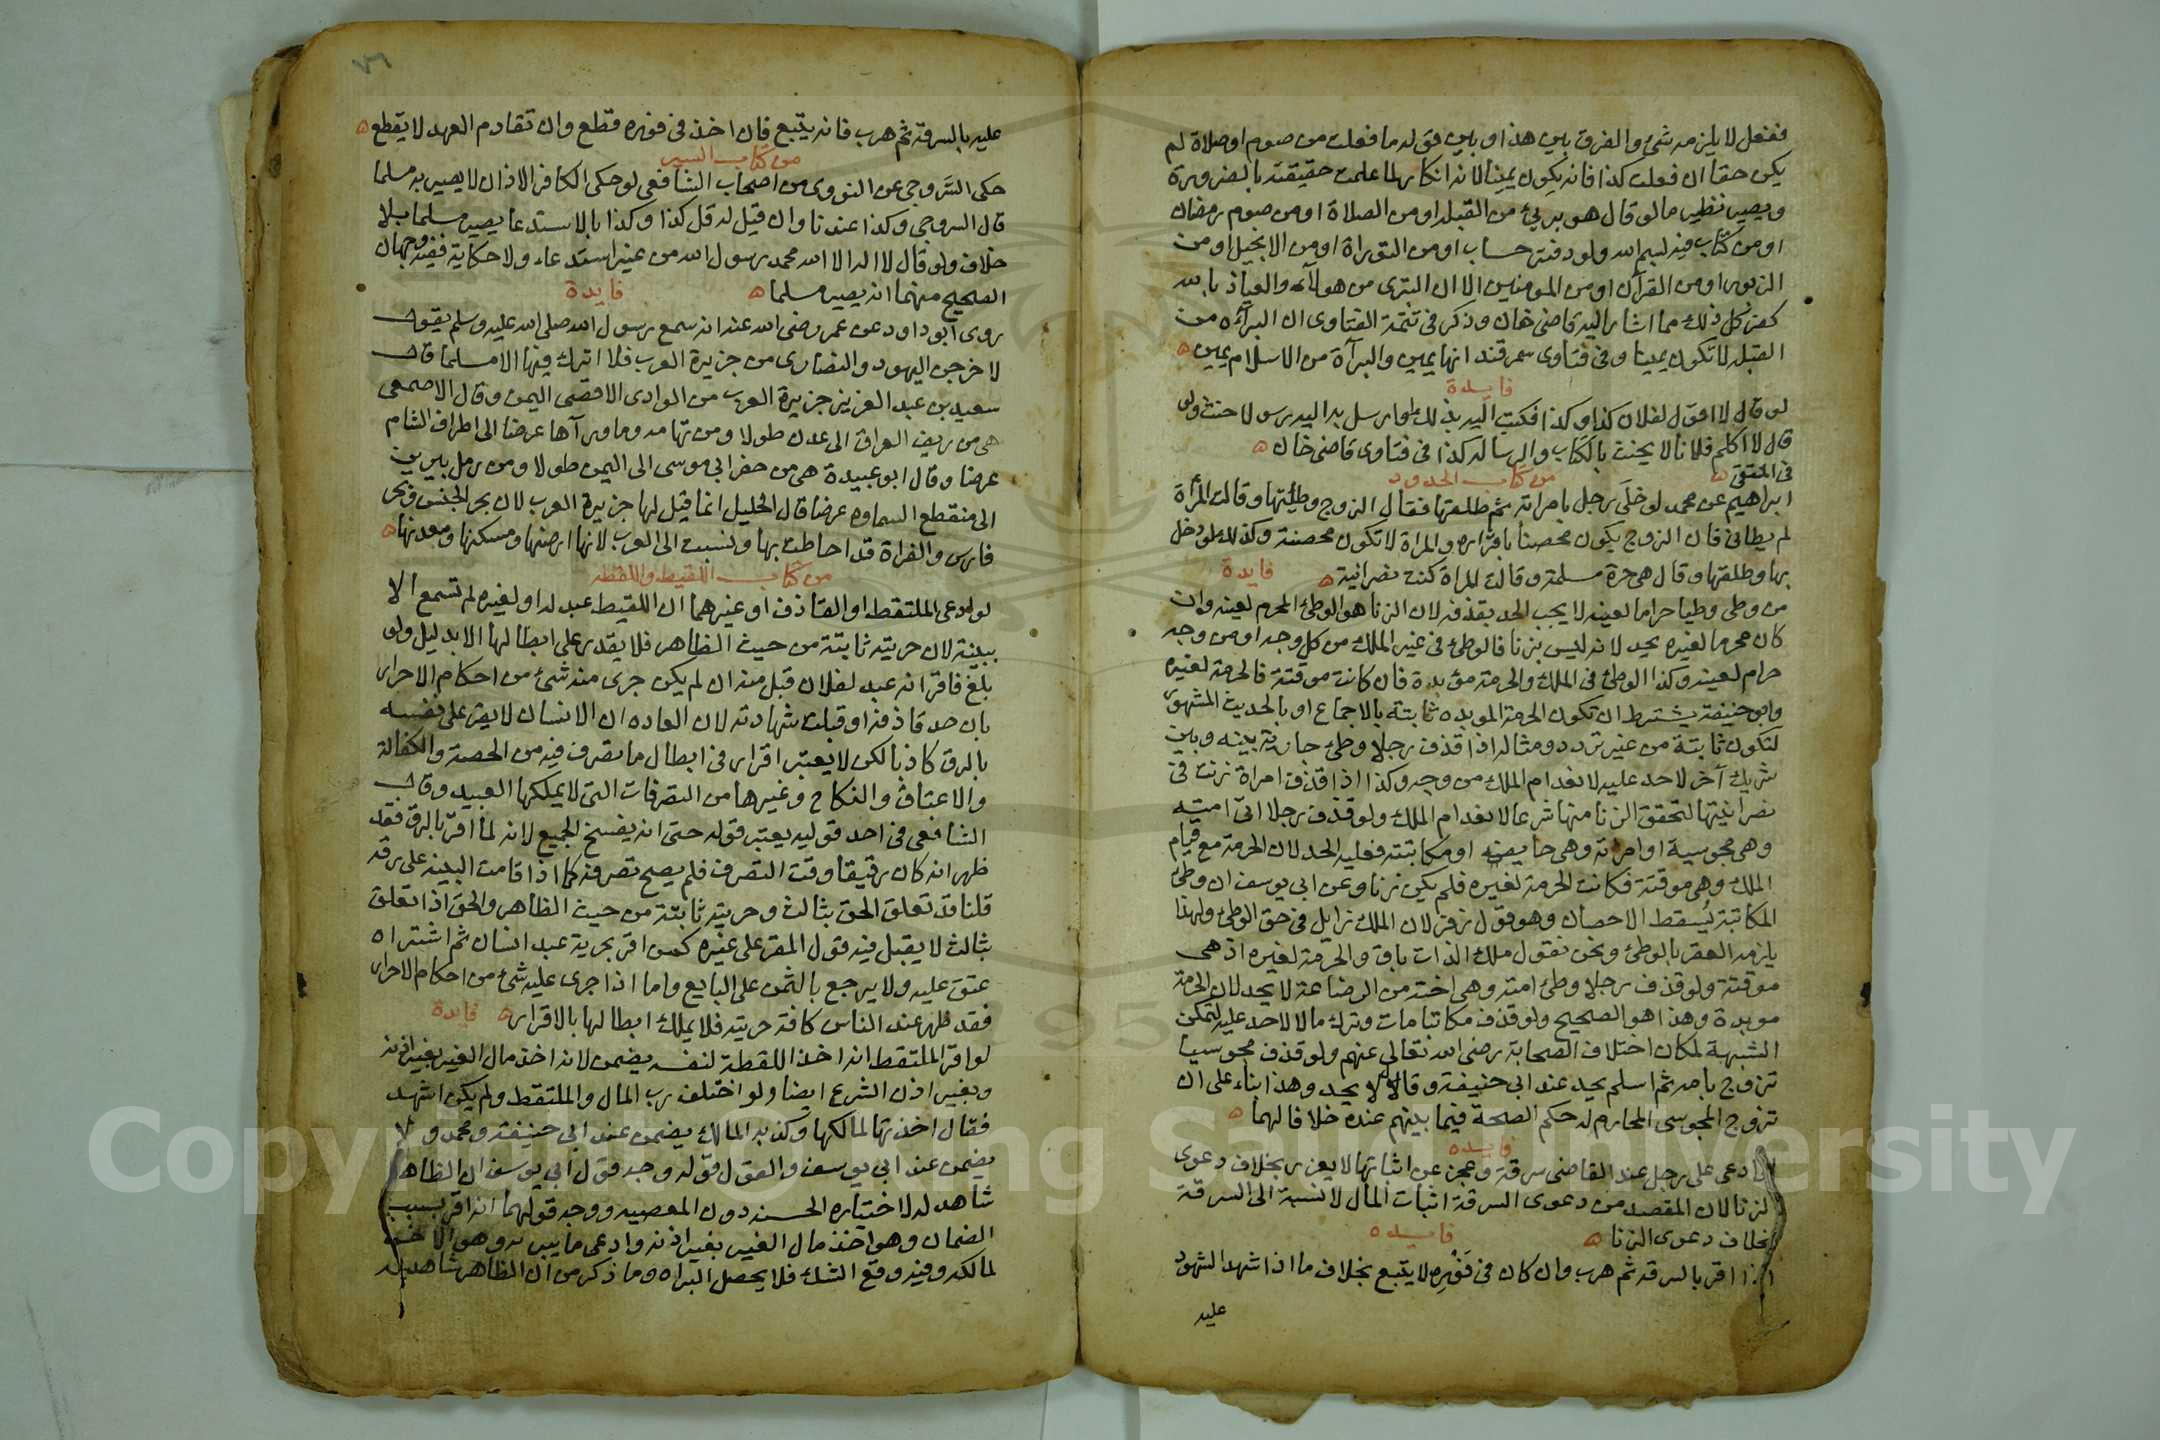 ففعل لا يلزمه شئ والفرق بين هذا وبين قوله ما فعلت من صوم او صلاة لم
يكن حقا ان فعلت كذا فانه يكون يمينا لانه انكار لما علمت حقيقته بالضرورة
ويصير نظير ما لو قال هو برئ من القبلة او من الصلاة او من صوم رمضان
او من كتاب فيه لبسم الله ولو دفتر حساب او من التوراة او من الانجيل او من
الزبور او من القرآن او من المومنين الا ان التبرى من هولآء والعياذ بالله
كفر كل ذلك مما اشار اليه قاضى خان وذكر فى تتمة الفتاوى ان البرآءه من
القبلة لا تكون يمينا وفى فتاوى سمرقند انها يمين والبرآة من الاسلام يمين
فايدة
لو قال لا اقول لفلان كذا وكذا فكتب اليه بذلك او ارسل به اليه رسولا حنث ولو
قال لا اكلم فلانا لا يحنث بالكتاب والرسالة كذا فى فتاوى قاضى خان
من كتاب الحدود
ابراهيم عن محمد لو خلى رجل بامراته ثم طلقها فقال الزوج وطئتها وقالت المرأة
لم يطانى فان الزوج يكون محصنا باقراره والمراة لا تكون محصنة وكذلك لو دخل
بها وطلقها وقال هى حرة مسلمة وقالت المراة كنت نصرانية فايدة
من وطى وطيا حراما لعينه لا يجب الحد بقذفه لان الزنا هو الوطئ المحرم لعينه وان
كان محرما لغيره يحد لانه ليس بزنا فالوطئ فى غير الملك من كل وجه او من وجه
حرام لعينه وكذا الوطئ فى الملك والحرمة مؤبدة فان كانت موقتة فالحرمة لغيره
وابو حنيفة يشترط ان تكون الحرمة الموبده ثابتة بالاجماع او بالحديث المشهور
لتكون ثابتة من غير تردد ومثاله اذا قذف رجلا وطئ جارية بينه وبين
شريك آخر لا حد عليه لانعدام الملك من وجه وكذا اذا قذف امراة زنت فى
نصرانيتها لتحقق الزنا منها شرعا لانعدام الملك ولو قذف رجلا اتى امته
وهى مجوسية او امراته وهى حايض او مكاتبته فعليه الحد لان الحرمة مع قيام
الملك وهى موقتة فكانت الحرمة لغيره فلم يكن زنا وعن ابى يوسف ان وطئ
المكاتبة يسقط الاحصان وهو قول زفر لان الملك زايل فى حق الوطئ ولهذا
يلزمه العقر بالوطئ ونحن نقول ملك الذات باق والحرمة لغيره اذ هى
موقتة ولو قذف رجلا وطئ امته وهى اخته من الرضاعة لا يحد لان الحرمة
موبدة وهذا هو الصحيح ولو قذف مكاتبا مات وترك مالا لا حد عليه لتمكن
الشبهة لمكان اختلاف الصحابة رضى الله تعالى عنهم ولو قذف مجوسيا
تزوج بامه ثم اسلم يحد عند ابى حنيفة وقالا لا يحد وهذا بناء على ان
تزوج المجوسى المحارم له حكم الصحة فيما بينهم عنده خلافا لهما
فايده
ادعى على رجل عند القاضى سرقة وعجز عن اثباتها لا يعزر بخلاف دعوى
الزنا لان المقصد من دعوى السرقة اثبات المال لا نسبة الى السرقة
بخلاف دعوى الزنا فايده
اذا اقر بالسرقة ثم هرب وان كان فى فوره لا يتبع بخلاف ما اذا شهد الشهود
عليه
٧٦
عليه بالسرقة ثم هرب فانه يتبع فان اخذ فى فوره قطع وان تقادم العهد لا يقطع
من كتاب السير
حكى السروجى عن النووى من اصحاب الشافعى لو حكى الكافر الاذان لا يصير به مسلما
قال السروجى وكذا عندنا وان قيل له قل كذا وكذا بالاستدعا يصير مسلما بلا
خلاف ولو قال لا اله الا الله محمد رسول الله من غير استدعاء ولا حكاية ففيه وجهان
الصحيح منهما انه يصير مسلما فايدة
روى ابو داود عن عمر رضى الله عنه انه سمع رسول الله صلى الله عليه وسلم يقول
لاخرجن اليهود والنصارى من جزيرة العرب فلا اترك فيها الا مسلما قال
سعيد بن عبد العزيز جزيرة العرب من الوادى الاقصى اليمن وقال الاصمعى
هى من ريف العراق الى عدن طولا ومن تهامه وما ورآها عرضا الى اطراف الشام
عرضا وقال ابو عبيدة هى من حفر ابى موسى الى اليمن طولا ومن رمل يبرين
الى منقطع السماوه عرضا قال الخليل انما قيل لها جزيرة العرب لان بحر الحبش وبحر
فارس والفراة قد احاطت بها ونسبت الى العرب لانها ارضها ومسكنها ومعدنها
من كتاب اللقيط واللقطه
لو ادعى الملتقط او القاذف او غيرهما ان اللقيط عبد له او لغيره لم تسمع الا
ببينة لان حريته ثابتة من حيث الظاهر فلا يقدر على ابطالها الا بدليل ولو
بلغ فاقر انه عبد لفلان قبل منه ان لم يكن جرى منه شئ من احكام الاحرار
بان حد قاذفه او قبلت شهادته لان العاده ان الانسان لا يقر على نفسه
بالرق كاذبا لكن لا يعتبر اقراره فى ابطال ما تصرف فيه من الحصة والكفالة
والاعتاق والنكاح وغيرها من التصرفات التى لا يملكها العبيد وقال
الشافعى فى احد قوليه يعتبر قوله حتى انه يفسخ الجميع لانه لما اقر بالرق فقد
ظهر انه كان رقيقا وقت التصرف فلم يصح تصرفه كما اذا قامت البينه على رقه
قلنا قد تعلق الحق بثالث وحريته ثابتة من حيث الظاهر والحق اذا تعلق
بثالث لا يقبل فيه قول المقر على غيره كمن اقر بحرية عبد انسان ثم اشتراه
عتق عليه ولا يرجع بالثمن على البايع واما اذا جرى عليه شئ من احكام الاحرار
فقد ظهر عند الناس كافة حريته فلا يملك ابطالها بالاقرار فايدة
لو اقر الملتقط انه اخذ اللقطة لنفسه يضمن لانه اخذ مال الغير بغير اذنه
وبغير اذن الشرع ايضا ولو اختلف رب المال والملتقط ولم يكن اشهد
فقال اخذتها لمالكها وكذبه المالك يضمن عند ابى حنيفة ومحمد ولا
يضمن عند ابى يوسف والقول قوله وجه قول ابى يوسف ان الظاهر
شاهد له لاختياره الحسنه دون المعصيه ووجه قولهما انه اقر بسبب
الضمان وهو اخذ مال الغير بغير اذنه وادعى ما يبريه وهو الاخذ
لمالكه وفيه وقع الشك فلا يحصل البراه وما ذكر من ان الظاهر شاهد له
Copyright © King Saud University